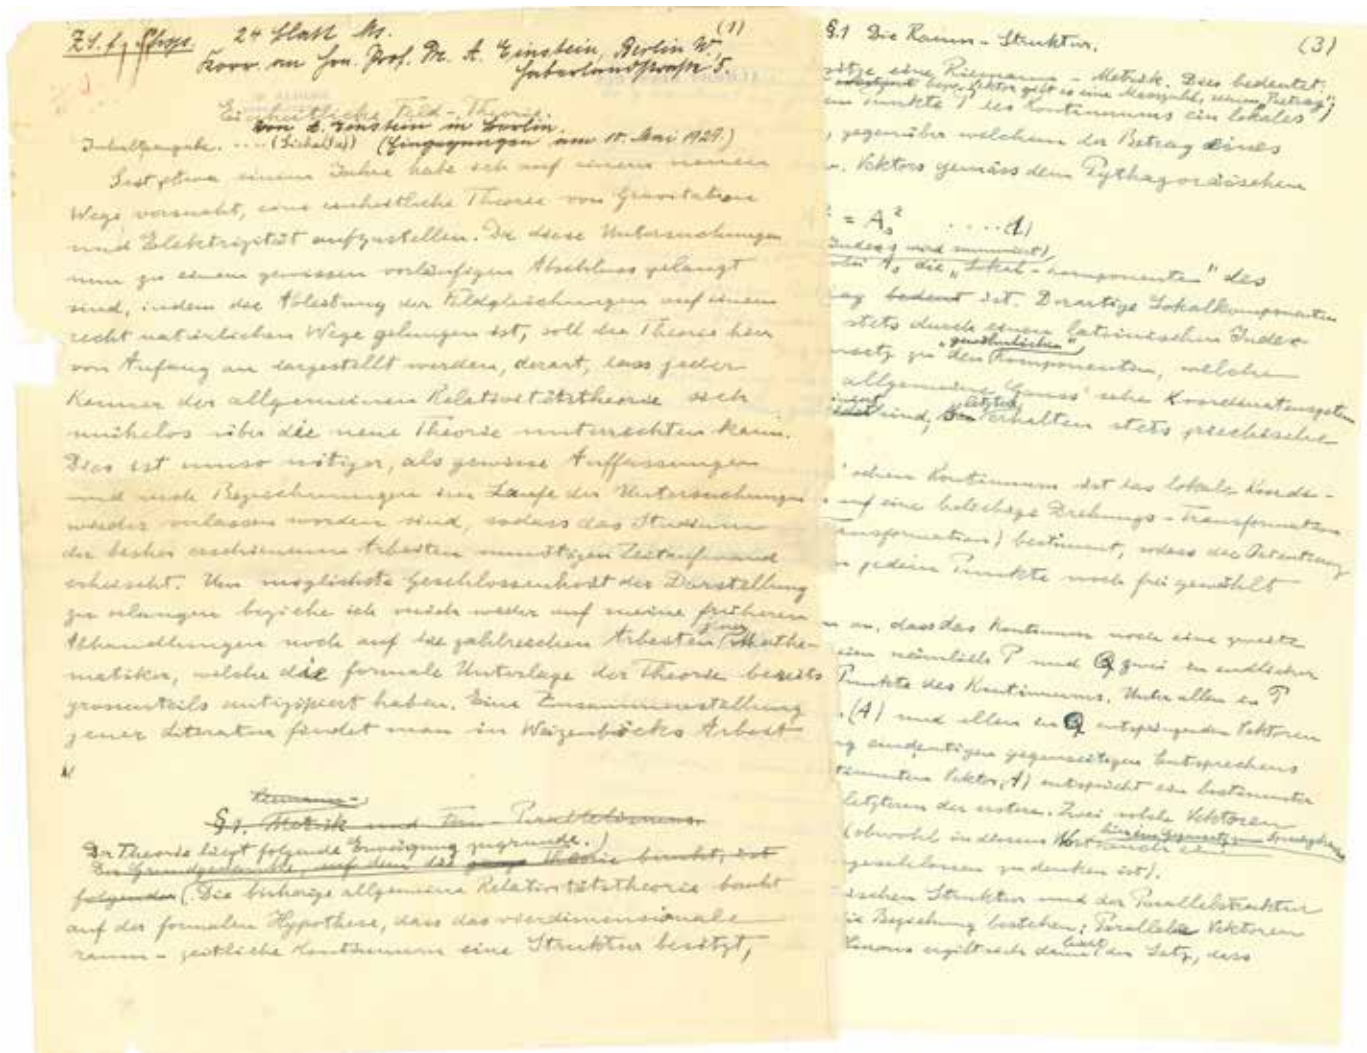 Z.S. f. Phys. 24 Blatt Ms. (1)
Korr. an Hrn. Prof. Dr. A. Einstein, Berlin W,
Haberlandstrasse 5.
Einheitliche Feld-Theorie.
Von A. Einstein in Berlin.
Inhaltsangabe. .... (Eingegangen am 1929)
Seit etwa einem Jahre habe ich auf einem neuen
Wege versucht, eine einheitliche Theorie von Gravitation
und Elektrizität aufzustellen. Da diese Untersuchungen
nun zu einem gewissen vorläufigen Abschluss gelangt
sind, indem die Ableitung der Feldgleichungen auf einem
recht natürlichen Wege gelungen ist, soll die Theorie hier
von Anfang an dargestellt werden, derart, dass jeder
Kenner der allgemeinen Relativitätstheorie sich
mühelos über die neue Theorie unterrichten kann.
Dies ist umso nötiger, als gewisse Auffassungen
und auch Bezeichnungen im Laufe der Untersuchungen
wieder verlassen worden sind, sodass das Studium
der bisher erschienenen Arbeiten unnötigen Zeitaufwand
erheischt. Um möglichste Geschlossenheit der Darstellung
zu erlangen beziehe ich mich weder auf meine früheren
Abhandlungen noch auf die zahlreichen Arbeiten jener Mathe-
matiker, welche die formale Unterlage der Theorie bereits
grossenteils antizipiert haben. Eine Zusammenstellung
jener Literatur findet man in Weizenböcks Arbeit
Riemann-
§1. Metrik und Fern-Parallelismus.
Der Theorie liegt folgende Erwägung zugrunde.
Der Grundgedanke, auf dem die ganze Theorie beruht, ist
folgender (Die bisherige allgemeine Relativitätstheorie beruht
auf der formalen Hypothese, dass das vierdimensionale
raum-zeitliche Kontinuum eine Struktur besitzt,
§.1 Die Raum-Struktur. (3)
eine Riemann-Metrik. Dies bedeutet:
Vektor gibt es eine Masszahl, seinen "Betrag";
Punkte P des Kontinuums ein lokales
, gegenüber welchem der Betrag eines
Vektors gemäss dem Pythagoräischen
² = A_s² .....(1)
Index s wird summiert)
A_s die "Lokal-Komponenten" des
bedeutet ist. Derartige Lokalkomponenten
stets durch einen lateinischen Index
"gewöhnlichen"
zu den Komponenten, welche
allgemeine Gauss'sche Koordinatensystem
letztere
sind, erhalten stets griechische
'schen Kontinuum ist das lokale Koordi-
auf eine beliebige Drehungs-Transformation
Transformation) bestimmt, sodass die Orientierung
jedem Punkte noch frei gewählt
an, dass das Kontinuum noch eine zweite
nämlich P und Q zwei endlicher
Punkte des Kontinuums. Unter allen in P
(A) und allen in Q entspringenden Vektoren
eindeutigen gegenseitigen Entsprechens
bestimmten Vektor (A) entspricht ein bestimmter
letzteren der erstere. Zwei solche Vektoren
(obwohl in diesem
geschlossen zu denken ist).
ischen Struktur und der Parallelstruktur
Beziehung bestehen: Parallele Vektoren
Hieraus ergibt sich der Satz, dass